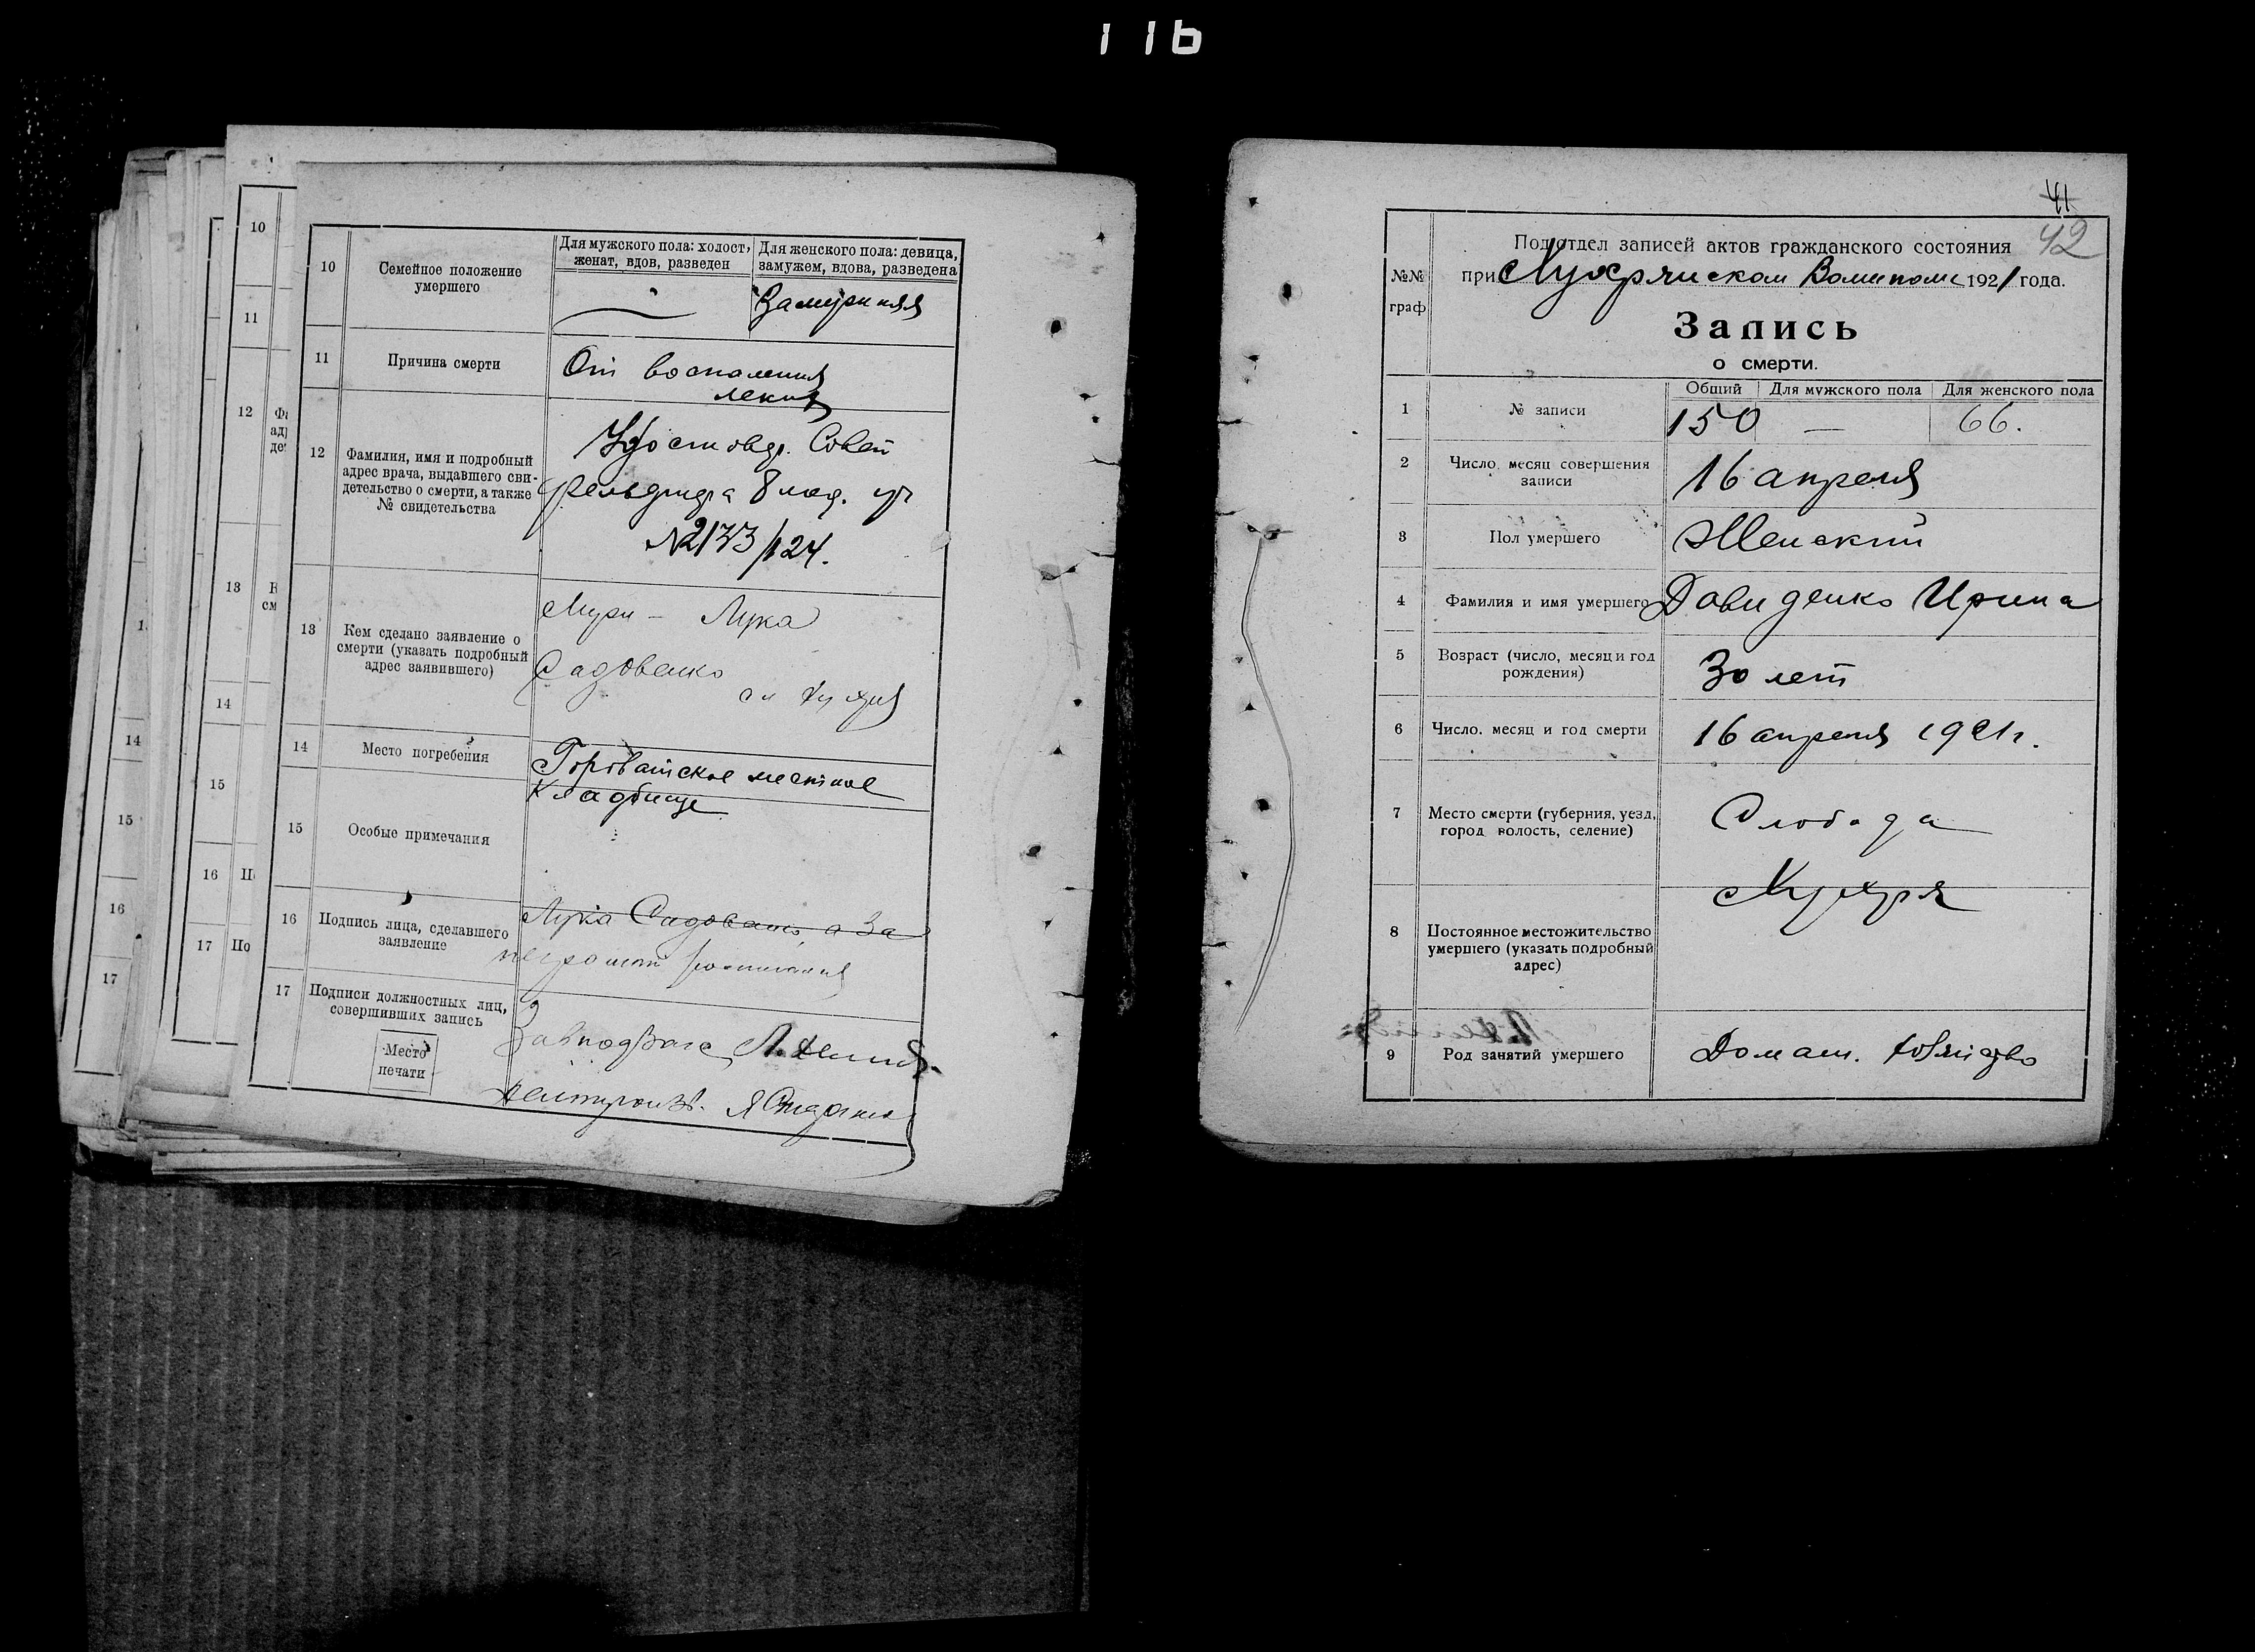 116
10
11
12
13
14
15
16
17
10 Семейное положение умершего
Для мужского пола: холост, женат, вдов, разведен
Для женского пола: девица, замужем, вдова, разведена
Замужняя
11 Причина смерти
От воспаления
легких
12 Фамилия, имя и подробный
адрес врача, выдавшего сви-
детельство о смерти, а также
№ свидетельства
Удостовер. Совет
фельдшера 8 мед. уч
13 Кем сделано заявление о
смерти (указать подробный
адрес заявившего)
Муж - Лука
Садовенко
14 Место погребения
местное
кладбище
15 Особые примечания
16 Подпись лица, сделавшего
заявление
Лука а за
17 Подписи должностных лиц,
совершивших запись
Место
печати
41
42
№№
граф
Подотдел записей актов гражданского состояния
при 1921 года.
Запись
о смерти.
Общий Для мужского пола Для женского пола
1 № записи 150 — 66.
2 Число, месяц совершения
записи
16 апреля
3 Пол умершего Женский
4 Фамилия и имя умершего Довиденко Ирина
5 Возраст (число, месяц и год
рождения)
30 лет
6 Число, месяц и год смерти 16 апреля 1921 г.
7 Место смерти (губерния, уезд,
город волость, селение)
Слобода
8 Постоянное местожительство
умершего (указать подробный
адрес)
9 Род занятий умершего Домаш. хозяйство